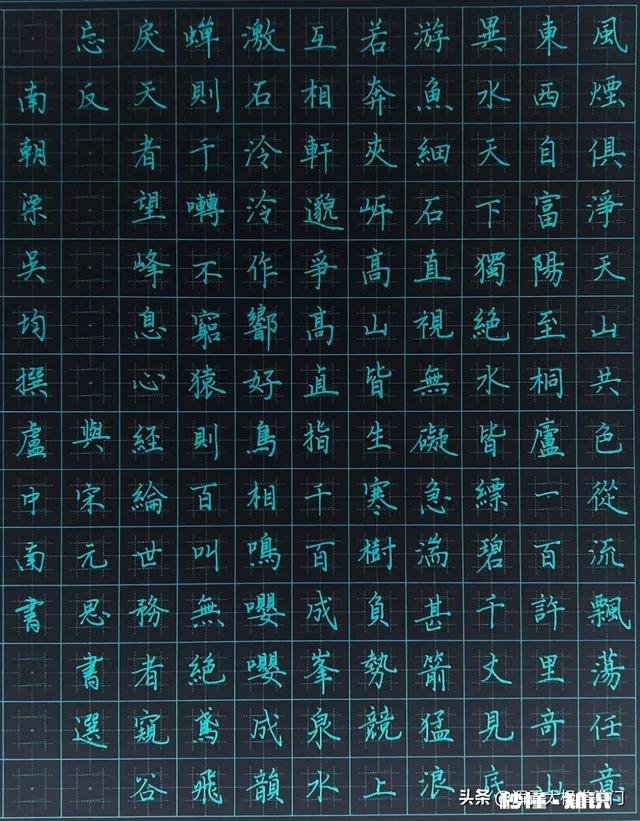 風煙俱淨天山共色從流飄蕩任意
東西自富陽至桐廬一百許里奇山
異水天下獨絕水皆縹碧千丈見底
游魚細石直視無礙急湍甚箭猛浪
若奔夾岸高山皆生寒樹負勢競上
互相軒邈爭高直指千百成峯泉水
激石泠泠作響好鳥相鳴嚶嚶成韻
蟬則千囀不窮猿則百叫無絕鳶飛
戾天者望峰息心經綸世務者窺谷
忘反
與宋元思書選
南朝梁吳均撰盧中南書
头条